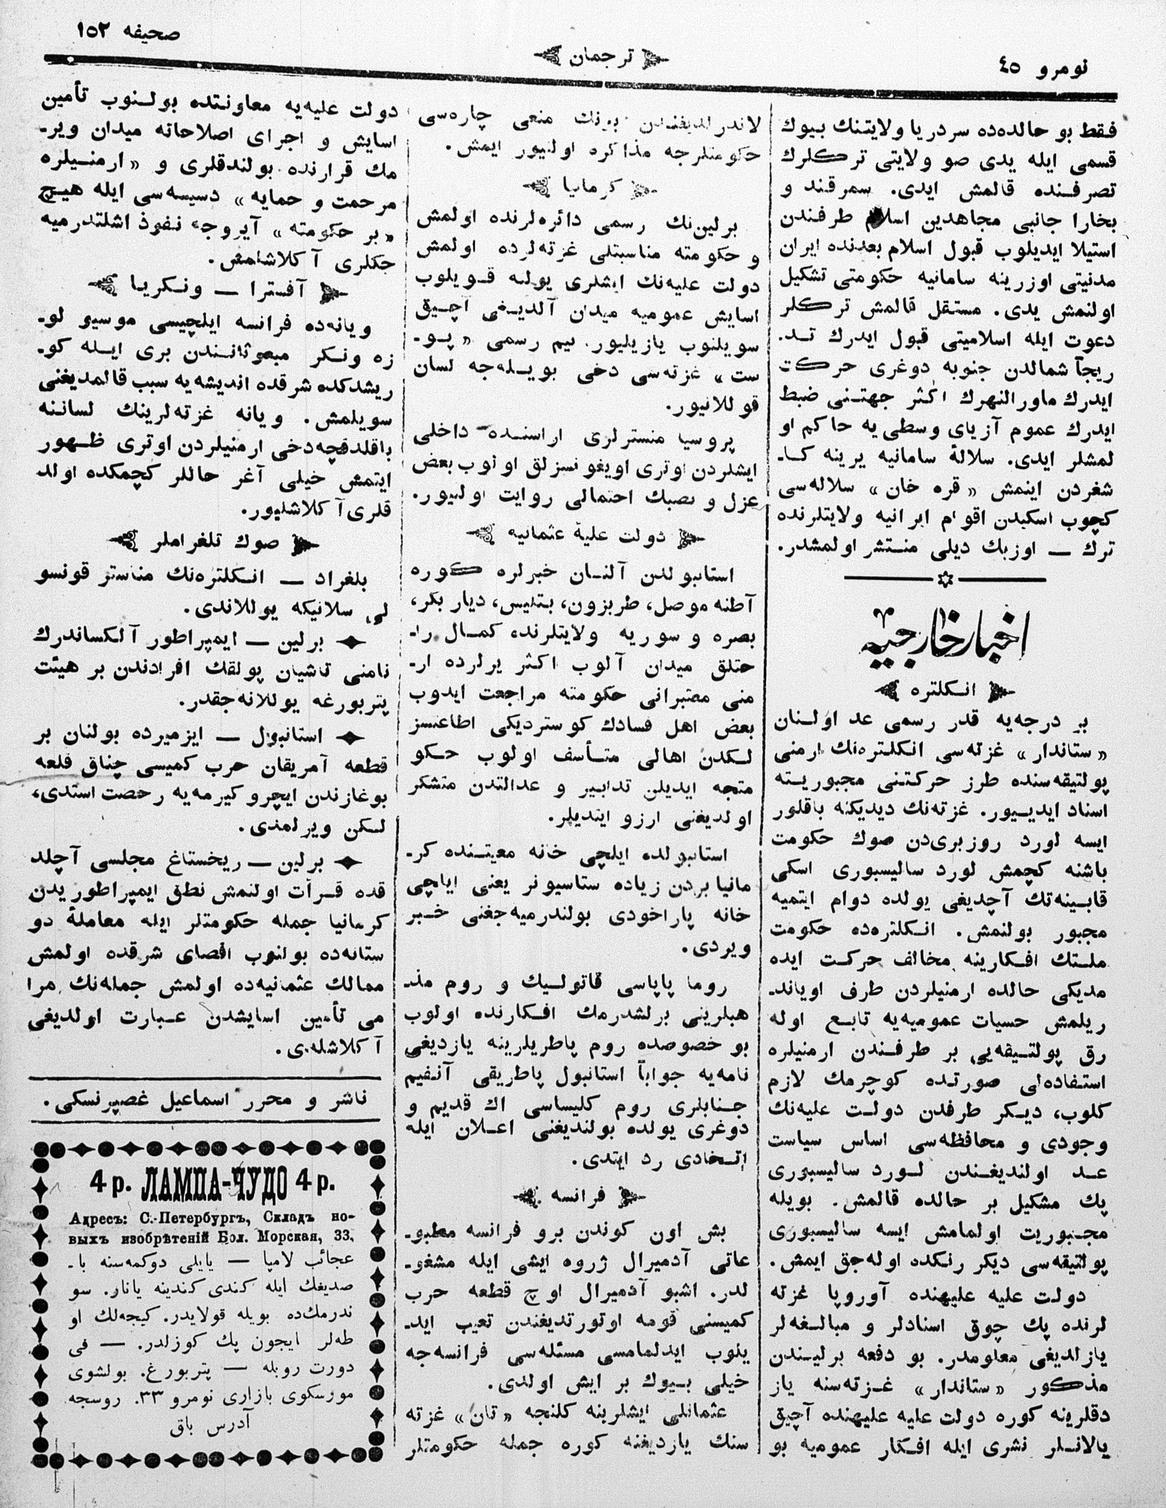 نومرو ٤٥
ترجمان
صحیفه ١٥٢
فقط بو حالده‌ده سردریا ولایتنك بیوك
قسمی ایله یدی صو ولایتی تركلرك
تصرفنده قالمش ایدی. سمرقند و
بخارا جانبی مجاهدین اسلام طرفندن
استیلا ایدیلوب قبول اسلام بعدنده ایران
مدنیتی اوزرینه سامانیه حكومتی تشكیل
اولنمش یدی. مستقل قالمش تركلر
دعوت ایله اسلامیتی قبول ایدرك تد-
ریجآ شمالدن جنوبه دوغری حركت
ایدرك ماورالنهرك اكثر جهتنی ضبط
ایدرك عموم آزیای وسطی‌یه حاكم او
لمشلر ایدی. سلالۀ سامانیه یرینه كا-
شغردن اینمش «قره خان» سلاله‌سی
كچوب اسكیدن اقوام ایرانیه ولایتلرنده
ترك — اوزبك دیلی منتشر اولمشدر.
اخبار خارجیه
انكلتره
بر درجه‌یه قدر رسمی عد اولنان
«ستاندار» غزته‌سی انكلتره‌نك ارمنی
پولتیقه‌سنده طرز حركتنی مجبوریته
اسناد ایدییور. غزته‌نك دیدیكنه باقلور
ایسه لورد روزبری‌دن صوك حكومت
باشنه كچمش لورد سالیسبوری اسكی
قابینه‌نك آچدیغی یولده دوام ایتمیه
مجبور بولنمش. انكلتره‌ده حكومت
ملتك افكارینه مخالف حركت ایده
مدیكی حالده ارمنیلردن طرف اویاند-
ریلمش حسیات عمومیه‌یه تابع اوله
رق پولتیقه‌یی بر طرفندن ارمنیلره
استفاده‌لی صورتده كوچرمك لازم
كلوب، دیكر طرفدن دولت علیه‌نك
وجودی و محافظه‌سی اساس سیاست
عد اولندیغندن لورد سالیسبوری
پك مشكیل بر حالده قالمش. بویله
مجبوریت اولمامش ایسه سالیسبوری
پولتیقه‌سی دیكر رنكده اوله‌جق ایمش.
دولت علیه علیهنده آوروپا غزته
لرنده پك چوق اسنادلر و مبالغه‌لر
یازلدیغی معلومدر. بو دفعه برلیندن
مذكور «ستاندار» غزته‌سنه یاز
دقلرینه كوره دولت علیه علیهنده آچیق
یالانلر نشری ایله افكار عمومیه بو
لاندرلدیغندن بونك منعی چاره‌سی
حكومتلرجه مذاكره اولنیور ایمش.
كرمانیا
برلین‌نك رسمی دائره‌لرنده اولمش
و حكومته مناسبتلی غزته‌لرده اولمش
دولت علیه‌نك ایشلری یولنه قویلوب
اسایش عمومیه میدان آلدیغی آچیق
سویلنوب یازیلیور. نیم رسمی «پو-
ست» غزته‌سی دخی بویله‌جه لسان
قوللانیور.
پروسیا منسترلری اراسنده داخلی
ایشلردن اوتری اویغونسزلق اولوب بعض
عزل و نصبك احتمالی روایت اولنیور.
دولت علیۀ عثمانیه
استانبولدن آلنان خبرلره كوره
آطنه موصل، طربزون، بتلیس، دیار بكر،
بصره و سوریه ولایتلرنده كمال را-
حتلق میدان آلوب اكثر یرلرده ار-
منی معتبرانی حكومته مراجعت ایدوب
بعض اهل فسادك كوستردیكی اطاعتسز
لكدن اهالی متأسف اولوب حكو
متجه ایدیلن تدابیر و عدالتدن متشكر
اولدیغنی ارزو ایتدیلر.
استانبولده ایلچی خانه معیتنده كر-
مانیا بردن زیاده ستاسیونر یعنی ایلچی
خانه پاراخودی بولندرمیه‌جغنی خبر
ویردی.
روما پاپاسی قاتولیك و روم مذ-
هبلرینی برلشدرمك افكارنده اولوب
بو خصوصده روم پاطریلرینه یازدیغی
نامه‌یه جواباً استانبول پاطریقی آنفیم
جنابلری روم كلیساسی اك قدیم و
دوغری یولده بولندیغنی اعلان ایله
اتحادی رد ایتدی.
فرانسه
بش اون كوندن برو فرانسه مطبو-
عاتی آدمیرال ژروه ایشی ایله مشغو-
لدر. اشبو آدمیرال اوچ قطعه حرب
كمیسنی قومه اوتورتدیغندن تعیب اید-
یلوب ایدلمامسی مسئله‌سی فرانسه‌جه
خیلی بیوك بر ایش اولدی.
عثمانلی ایشلرینه كلنجه «تان» غزته
سنك یازدیغنه كوره جمله حكومتلر
دولت علیه‌یه معاونتده بولنوب تأمین
اسایش و اجرای اصلاحاته میدان ویر-
مك قرارنده بولندقلری و «ارمنیلره
مرحمت و حمایه» دسیسه‌سی ایله هیچ
«بر حكومته» آیروجه نفوذ اشلتدرمیه
جكلری آكلاشلمش.
آفسترا — ونكریا
ویانه‌ده فرانسه ایلچیسی موسیو لو-
زه ونكر مبعوثانندن بری ایله كو-
ریشدكده شرقده اندیشه‌یه سبب قالمدیغنی
سویلمش. ویانه غزته‌لرینك لساننه
باقلدقچه‌دخی ارمنیلردن اوتری ظهور
ایتمش خیلی آغر حاللر كچمكده اولد
قلری آكلاشلیور.
صوك تلغراملر
بلغراد — انكلتره‌نك مناستر قونسو
لی سلانیكه یوللاندی.
برلین — ایمپراطور آلكساندرك
نامنی تاشیان پولقك افرادندن بر هیئت
پتربورغه یوللانه‌جقدر.
استانبول — ایزمیرده بولنان بر
قطعه آمریقان حرب كمیسی چناق قلعه
بوغازندن ایچرو كیرمه‌یه رخصت استدی،
لكن ویرلمدی.
برلین — ریخستاغ مجلسی آچلد
قده قرأت اولنمش نطق ایمپراطوریدن
كرمانیا جمله حكومتلر ایله معاملۀ دو
ستانه‌ده بولنوب اقصای شرقده اولمش
ممالك عثمانیه‌ده اولمش جمله‌نك مرا
می تأمین اسایشدن عبارت اولدیغی
آكلاشلدی.
ناشر و محرر اسماعیل غصپرنسكی.
4 р. ЛАМПА-ЧУДО 4 р.
Адресъ: С.-Петербургъ, Складъ но-
выхъ изобрѣтеній Бол. Морская, 33.
عجائب لامپا — یایلی دوكمه‌سنه با-
صدیغك ایله كندی كندینه یانار. سو
ندرمك‌ده بویله قولایدر. كیجه‌لك او
طه‌لر ایچون پك كوزلدر. — فی
دورت روبله — پتربورغ. بولشوی
مورسكوی بازاری نومرو ٣٣. روسجه
آدرس باق